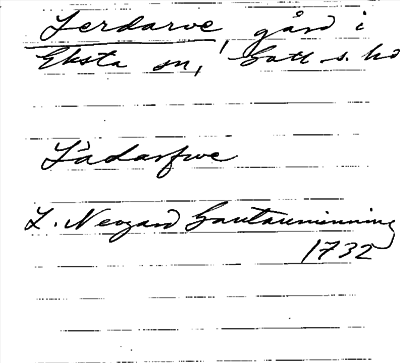 Lerdarve, gård i
Eksta sn, Gotl. s. hd
Lädarfwe
L. Neogard Gautauminning
1732